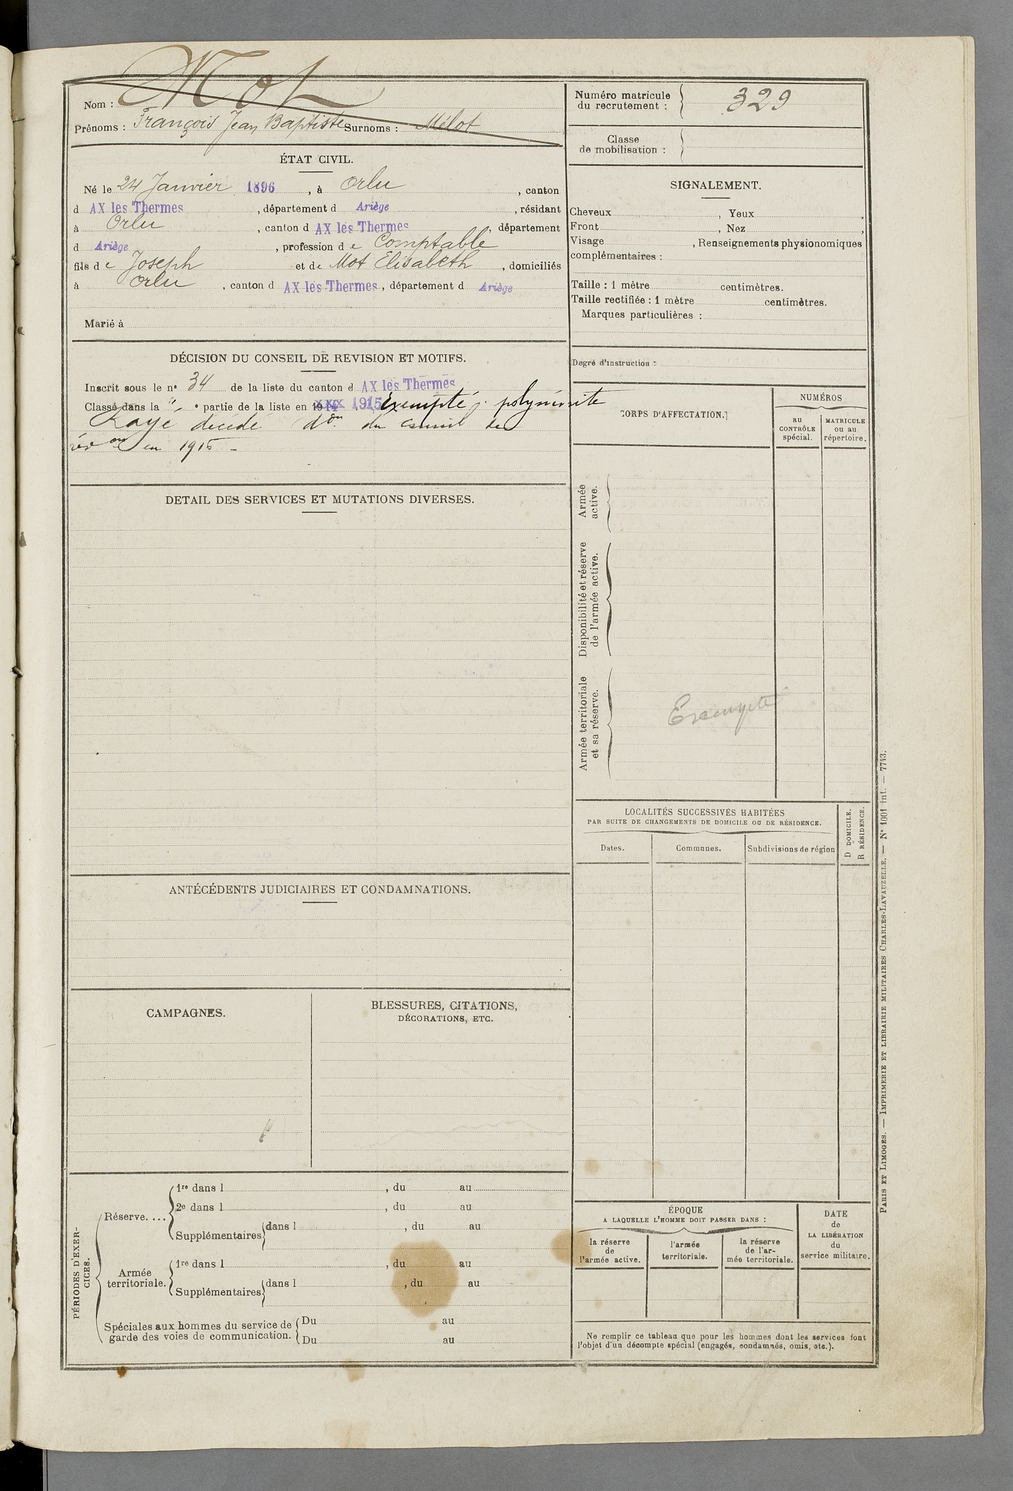 Nom : Mot
Prénoms : François Jean Baptiste Surnoms : Mélot
ÉTAT CIVIL.
Né le 24 Janvier 1896, à Orlu, canton
d AX les Thermes, département d Ariège, résidant
à Orlu, canton d AX les Thermes, département
d Ariège, profession de Comptable
fils de Joseph et de Mot Elisabeth, domiciliés
à Orlu, canton d AX les Thermes, département d Ariège
Marié à
DÉCISION DU CONSEIL DE REVISION ET MOTIFS.
Inscrit sous le n° 34 de la liste du canton d AX les Thermes
Classé dans la " e partie de la liste en 1915 Exempté : polynévrite
Rayé décédé don du Conseil de
révon en 1915 -
DETAIL DES SERVICES ET MUTATIONS DIVERSES.
ANTÉCÉDENTS JUDICIAIRES ET CONDAMNATIONS.
CAMPAGNES.
BLESSURES, CITATIONS,
DÉCORATIONS, ETC.
PÉRIODES D'EXERCICES.
Réserve....
1re dans l , du au
2e dans l , du au
Supplémentaires dans l , du au
Armée
territoriale.
1re dans l , du au
Supplémentaires dans l , du au
Spéciales aux hommes du service de
garde des voies de communication.
Du au
Du au
Numéro matricule
du recrutement : 329
Classe
de mobilisation :
SIGNALEMENT.
Cheveux , Yeux ,
Front , Nez ,
Visage , Renseignements physionomiques
complémentaires :
Taille : 1 mètre centimètres.
Taille rectifiée : 1 mètre centimètres.
Marques particulières :
Degré d'instruction :
CORPS D'AFFECTATION.
NUMÉROS
AU
CONTRÔLE
spécial.
MATRICULE
ou au
répertoire.
Armée
active.
Disponibilité et réserve
de l'armée active.
Armée territoriale
et sa réserve.
Exempté
LOCALITÉS SUCCESSIVES HABITÉES
PAR SUITE DE CHANGEMENTS DE DOMICILE OU DE RÉSIDENCE.
Dates.
Communes.
Subdivisions de région
D DOMICILE.
R RÉSIDENCE.
ÉPOQUE
A LAQUELLE L'HOMME DOIT PASSER DANS :
la réserve
de
l'armée active.
l'armée
territoriale.
la réserve
de l'ar-
mée territoriale.
DATE
de
LA LIBÉRATION
du
service militaire.
Ne remplir ce tableau que pour les hommes dont les services font
l'objet d'un décompte spécial (engagés, condamnés, omis, etc.).
PARIS ET LIMOGES. — IMPRIMERIE ET LIBRAIRIE MILITAIRES CHARLES-LAVAUZELLE. — N° 1001 int. — 7743.